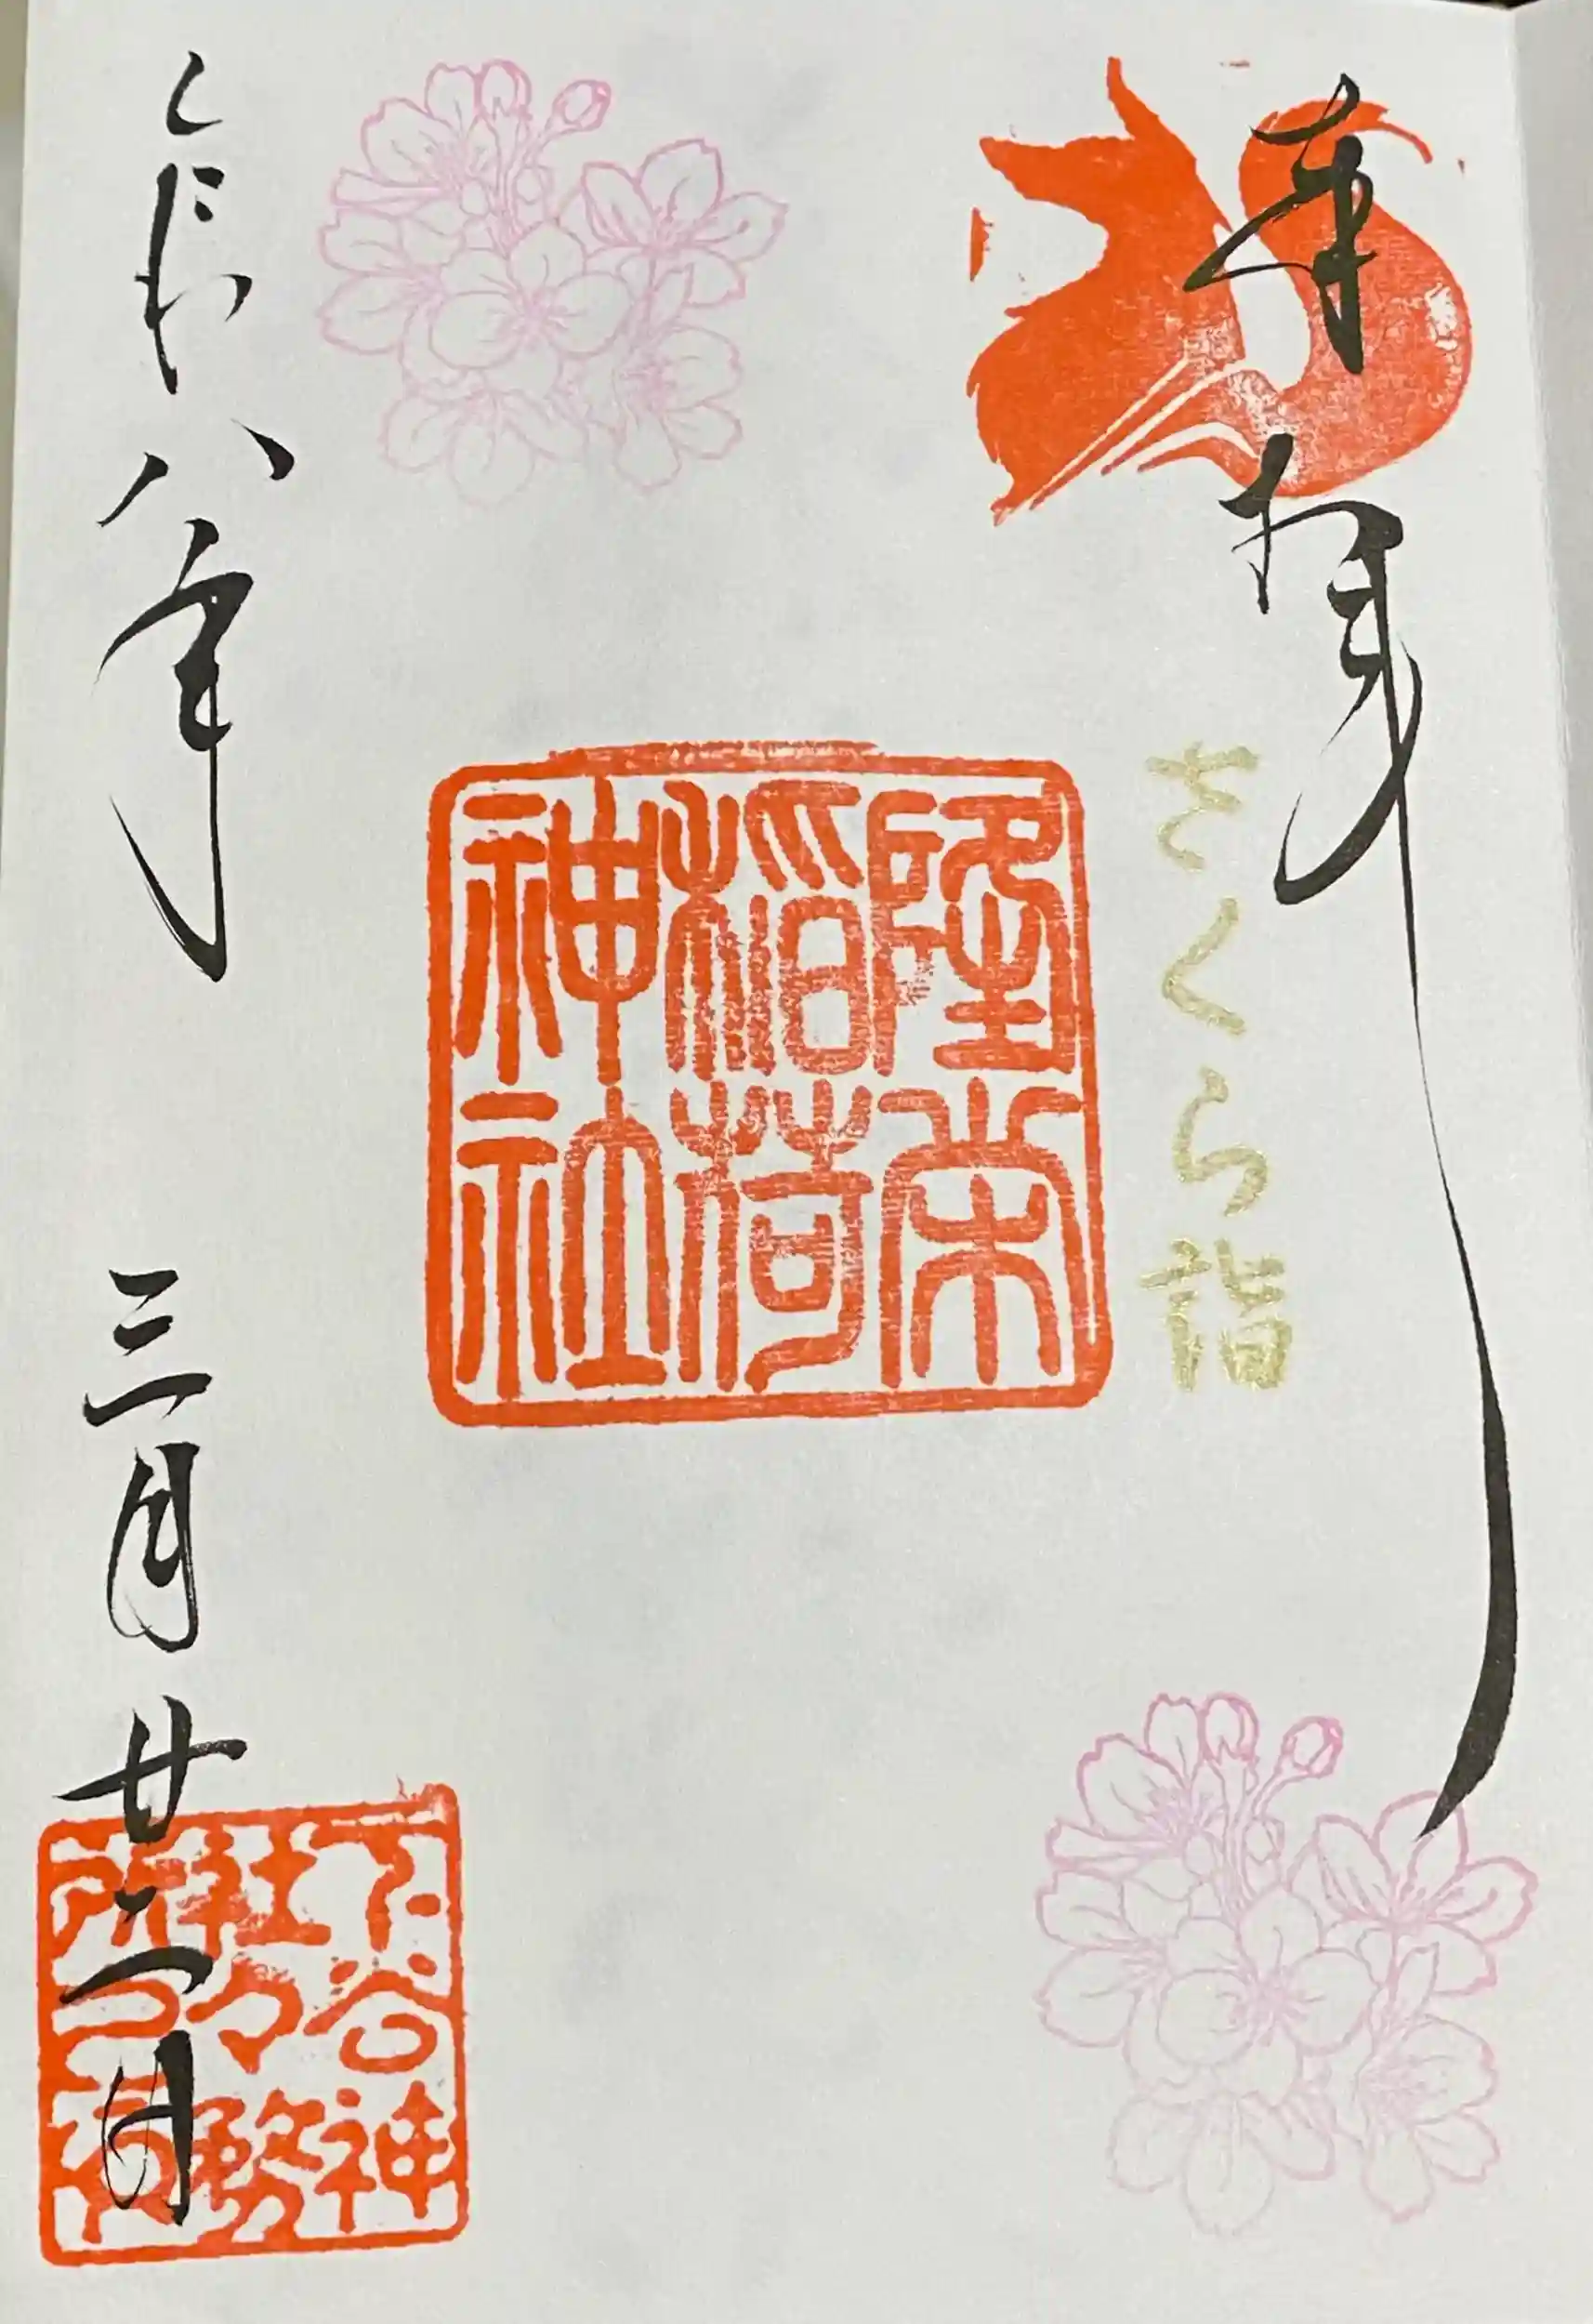 奉拝
さくら詣
隆栄
稲荷
神社
令和八年 三月廿二日
下谷神
社々務
所之印